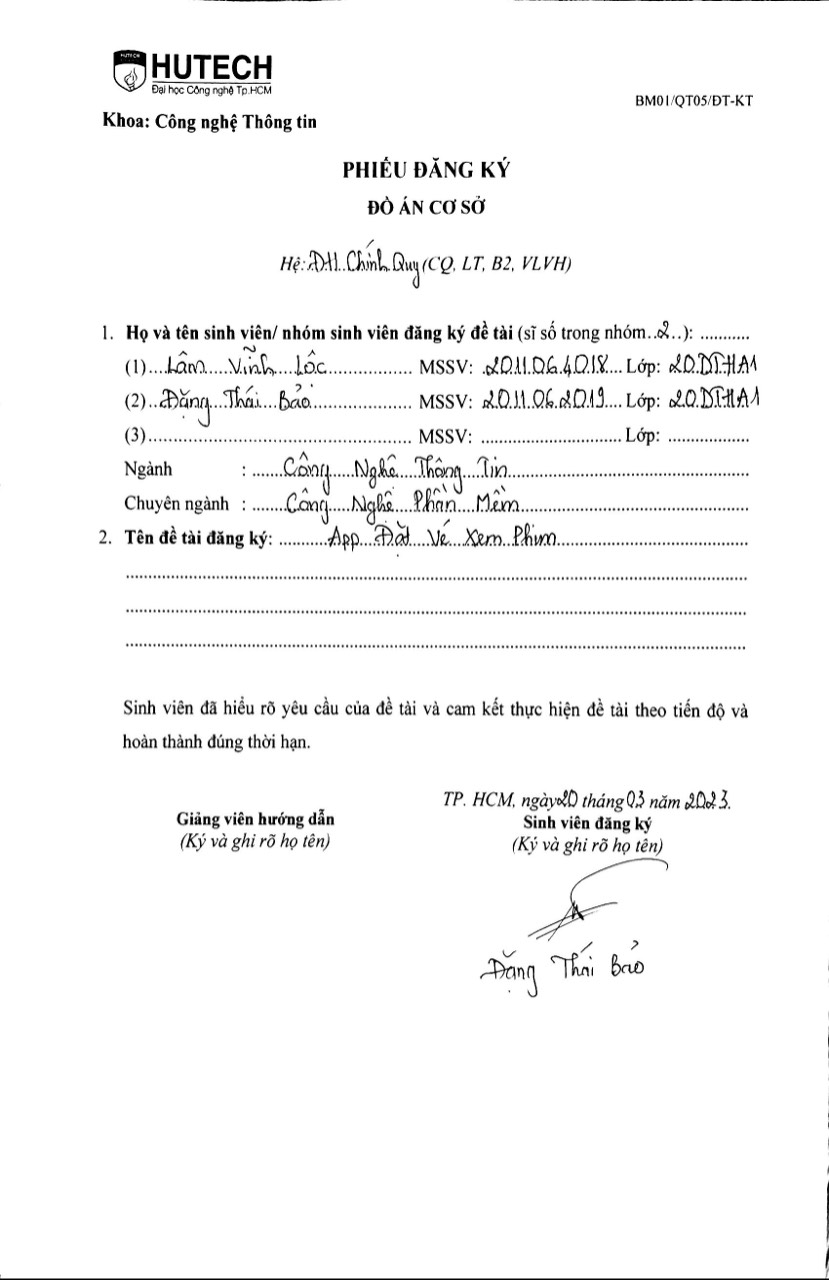 HUTECH
HUTECH
Đại học Công nghệ Tp.HCM
BM01/QT05/ĐT-KT
Khoa: Công nghệ Thông tin
PHIẾU ĐĂNG KÝ
ĐỒ ÁN CƠ SỞ
Hệ: ĐH Chính Quy (CQ, LT, B2, VLVH)
1. Họ và tên sinh viên/ nhóm sinh viên đăng ký đề tài (sĩ số trong nhóm..2..): ...........
(1)....Lâm....Vĩnh....Lộc.................... MSSV: .2011064018... Lớp: 20.DTHA1
(2)...Đặng...Thái...Bảo..................... MSSV: 2011062019... Lớp: 20.DTHA1
(3)..................................................... MSSV: ............................... Lớp: ..................
Ngành : ......Công....Nghệ...Thông...Tin.....................................................
Chuyên ngành : .......Công....Nghệ...Phần...Mềm..................................................
2. Tên đề tài đăng ký: ...........App...Đặt...Vé...Xem...Phim...........................................
Sinh viên đã hiểu rõ yêu cầu của đề tài và cam kết thực hiện đề tài theo tiến độ và
hoàn thành đúng thời hạn.
TP. HCM, ngày 20 tháng 03 năm 2023.
Giảng viên hướng dẫn
Sinh viên đăng ký
(Ký và ghi rõ họ tên)
(Ký và ghi rõ họ tên)
Đặng Thái Bảo